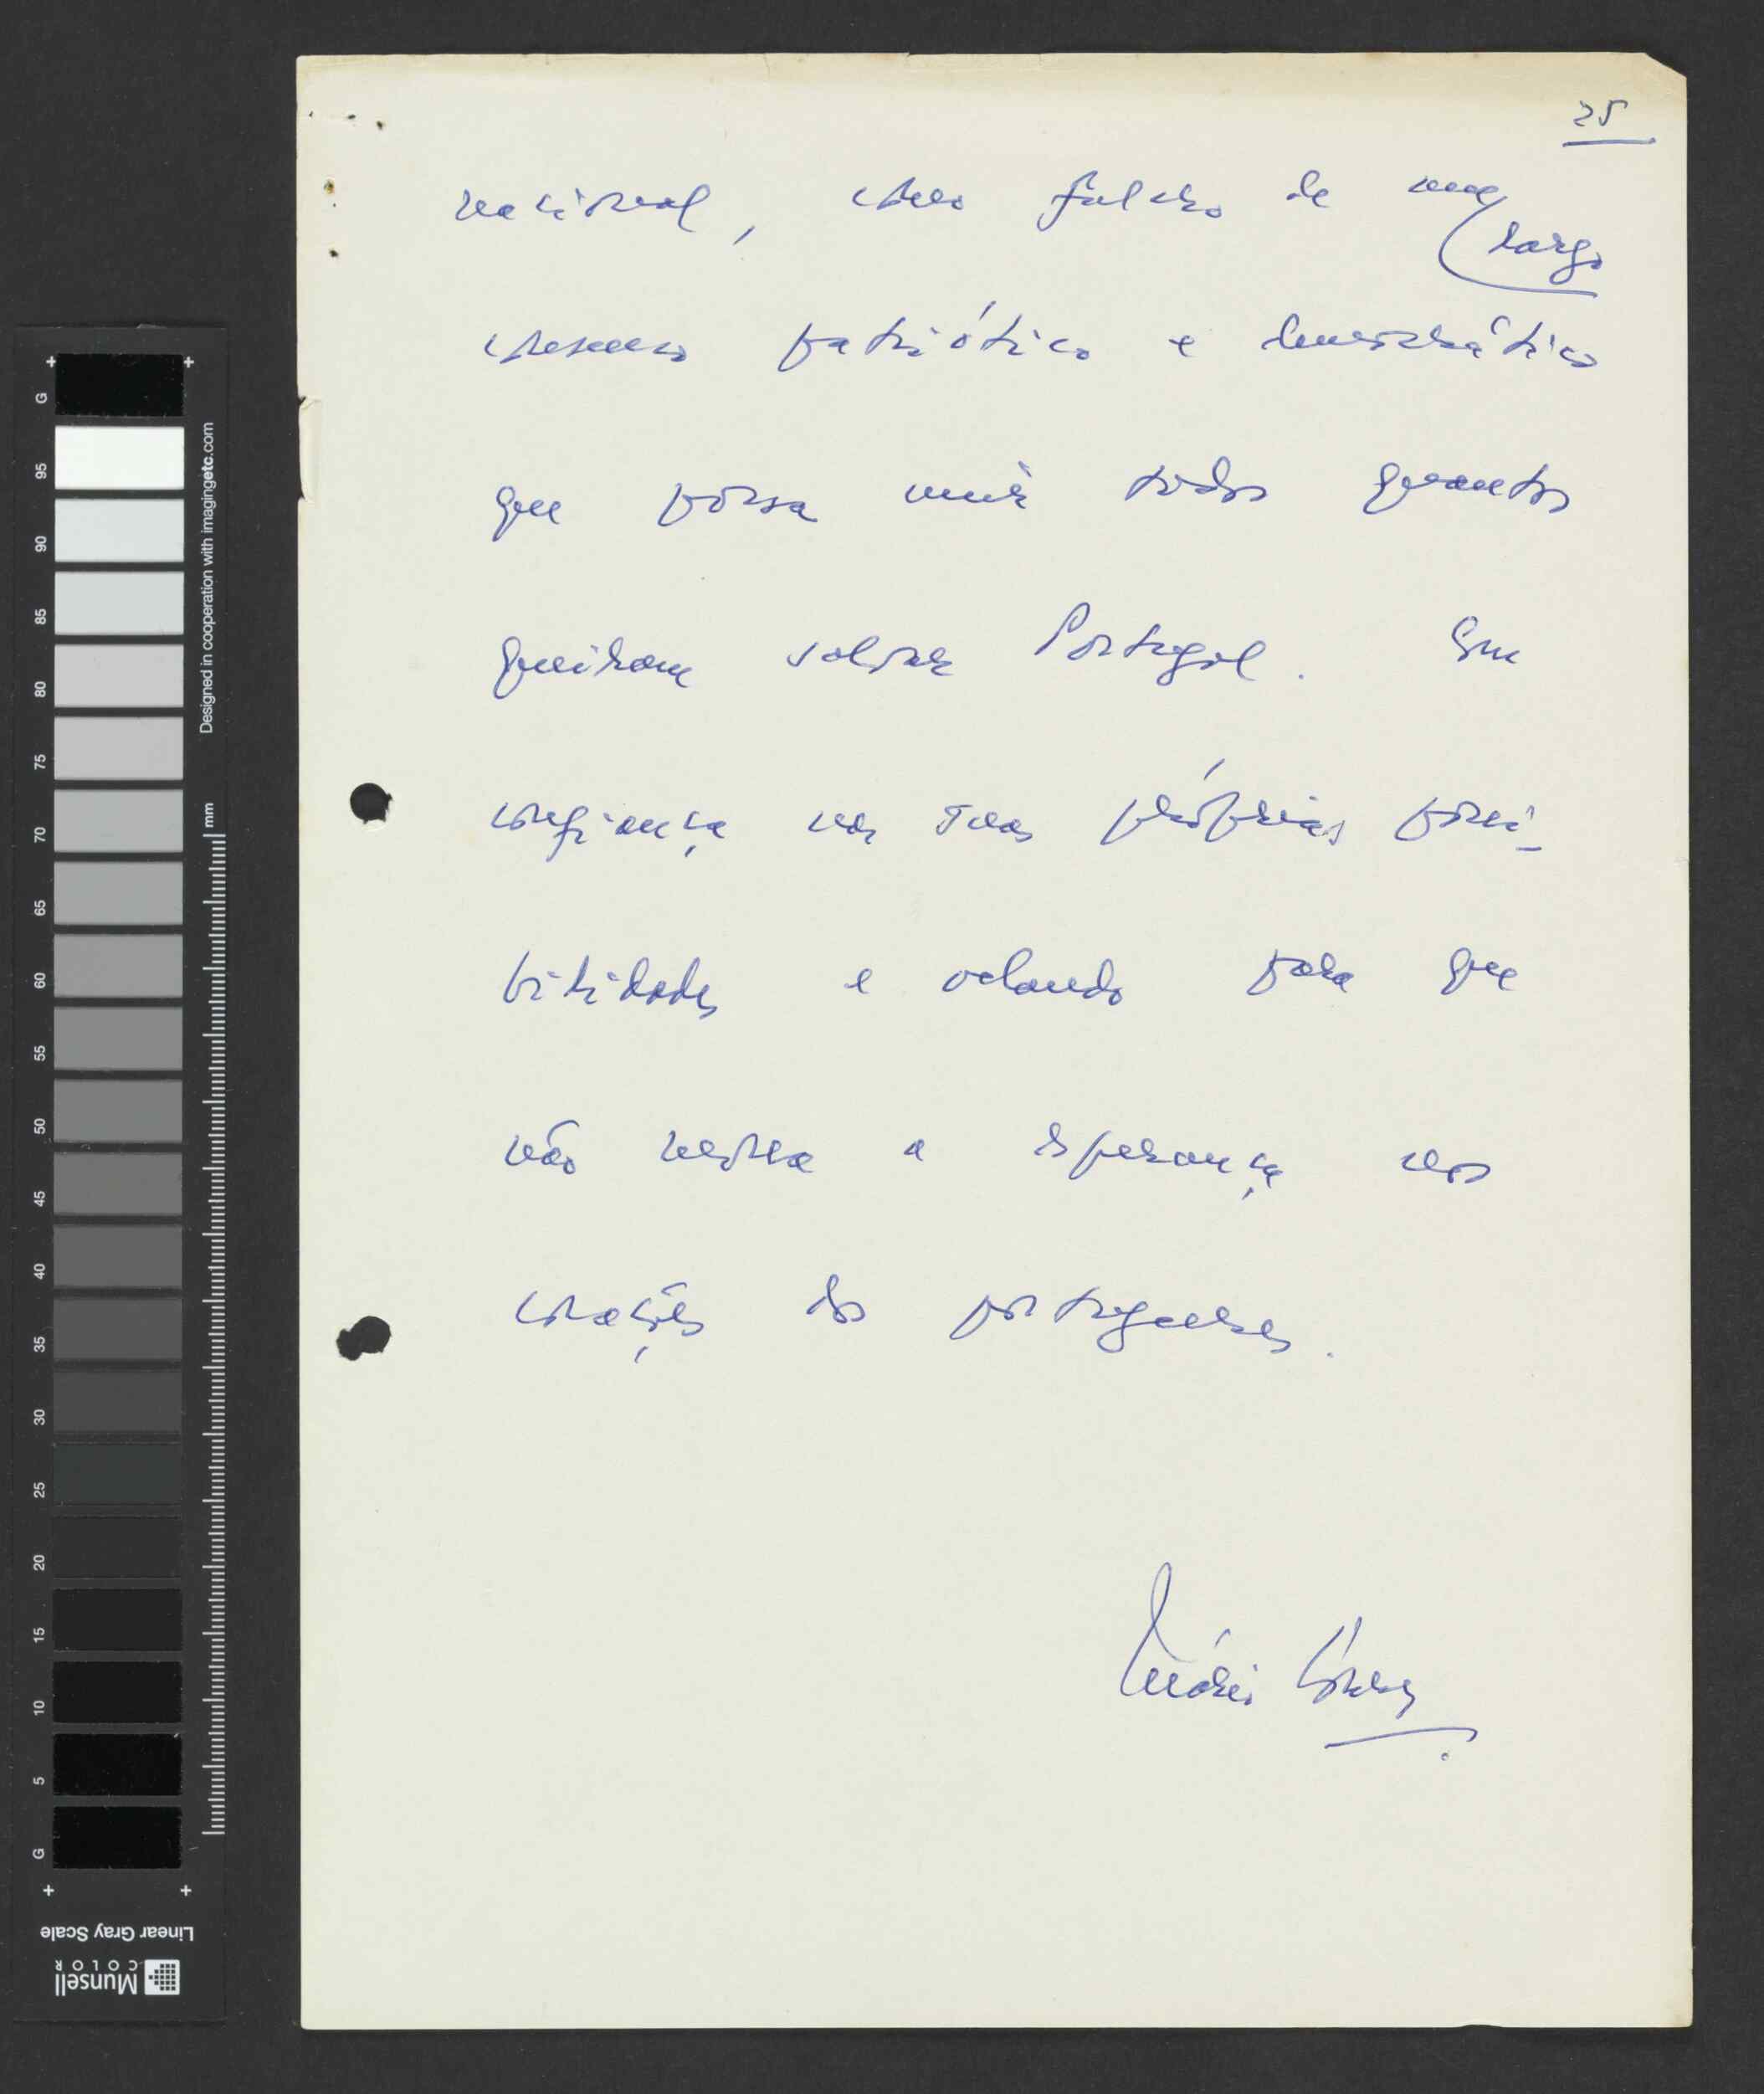 25
nacional, como fulcro de um
largo
consenso patriótico e democrático
que possa unir todos quantos
queiram salvar Portugal. Com
confiança nas suas próprias possi-
bilidades e velando para que
não morra a esperança nos
corações dos portugueses.
Mário Soares
G
95
90
85
80
75
70
65
60
55
50
45
40
35
30
25
20
15
10
5
G
Designed in cooperation with imagingetc.com
mm
Linear Gray Scale
Munsell
COLOR